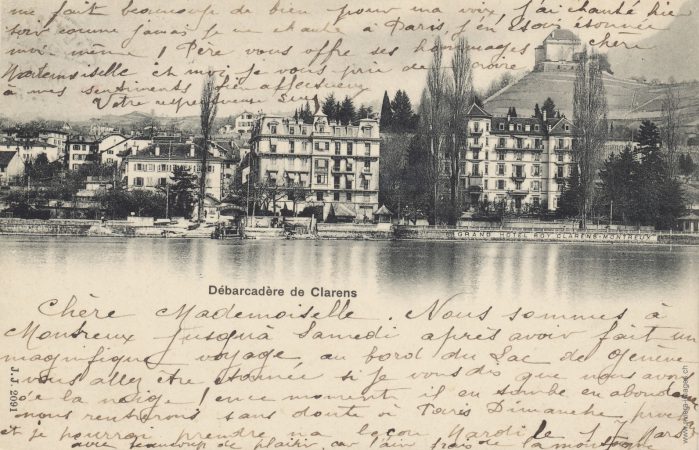 me fait beaucoup de bien pour ma voix j'ai chanté hier
soir comme jamais je ne chante à Paris j'en suis étonnée
moi même ! Père vous offre ses hommages chère
Mademoiselle et moi je vous prie de croire
à mes sentiments bien affectueux
Votre respectueuse
GRAND HÔTEL ROY CLARENS-MONTREUX
Débarcadère de Clarens
Chère Mademoiselle. Nous sommes à
Montreux jusqu'à Samedi après avoir fait un
magnifique voyage au bord du Lac de Genève
vous allez être étonnée si je vous dis que nous avons
de la neige ! en ce moment il en tombe en abondance
nous rentrerons sans doute à Paris Dimanche
et je pourrai prendre ma leçon Mardi le 17 Mars
avec beaucoup de plaisir, car l'air frais de la montagne
J.J. 2091